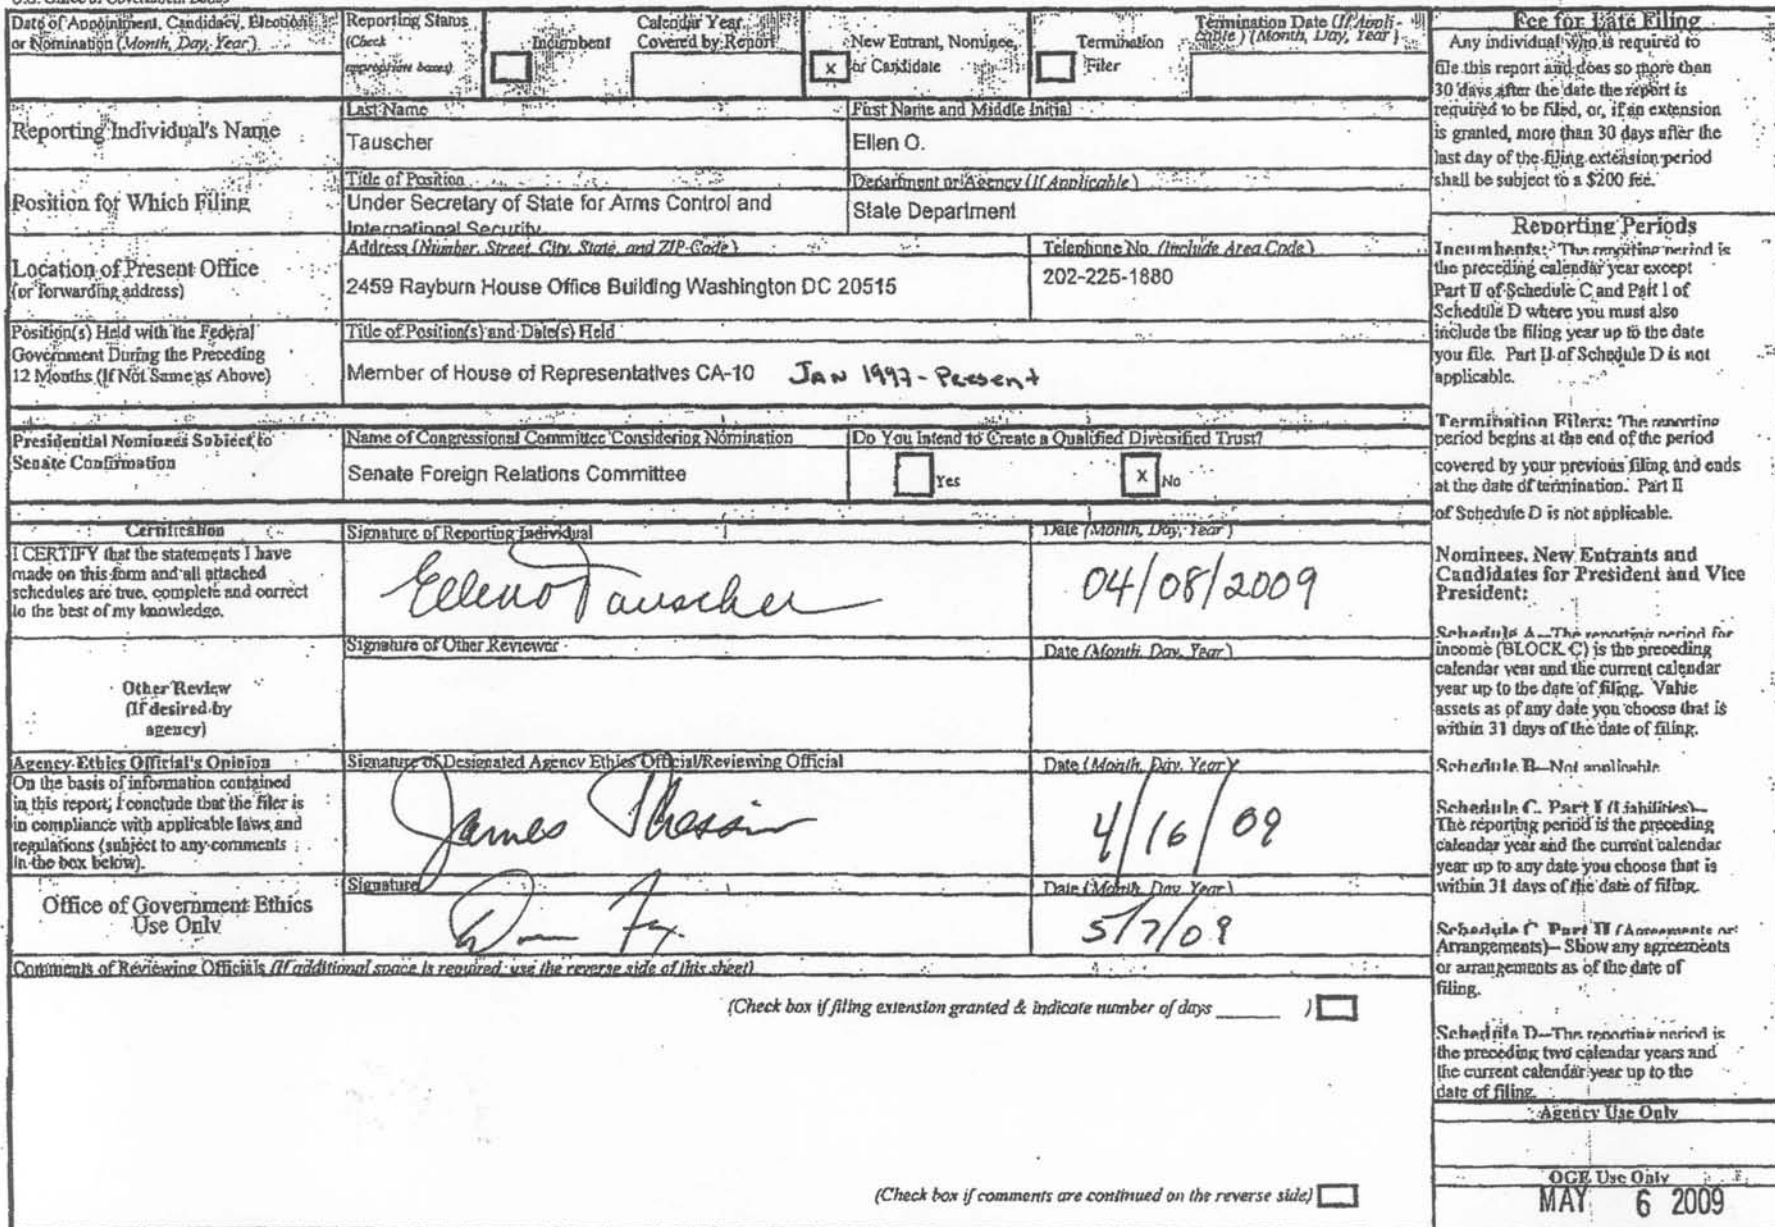 Date of Appointment, Candidacy, Election,
or Nomination (Month, Day, Year)
Reporting Status
(Check
appropriate boxes)
Incumbent
Calendar Year
Covered by Report
x
New Entrant, Nominee,
or Candidate
Termination
Filer
Termination Date (If Appli-
cable) (Month, Day, Year)
Reporting Individual's Name
Last Name
Tauscher
First Name and Middle Initial
Ellen O.
Position for Which Filing
Title of Position
Under Secretary of State for Arms Control and
International Security
Department or Agency (If Applicable)
State Department
Location of Present Office
(or forwarding address)
Address (Number, Street, City, State, and ZIP Code)
2459 Rayburn House Office Building Washington DC 20515
Telephone No. (Include Area Code)
202-225-1880
Position(s) Held with the Federal
Government During the Preceding
12 Months (If Not Same as Above)
Title of Position(s) and Date(s) Held
Member of House of Representatives CA-10 JAN 1997 - Present
Presidential Nominees Subject to
Senate Confirmation
Name of Congressional Committee Considering Nomination
Senate Foreign Relations Committee
Do You Intend to Create a Qualified Diversified Trust?
Yes
x No
Certification
I CERTIFY that the statements I have
made on this form and all attached
schedules are true, complete and correct
to the best of my knowledge.
Signature of Reporting Individual
Ellen O Tauscher
Date (Month, Day, Year)
04/08/2009
Other Review
(If desired by
agency)
Signature of Other Reviewer
Date (Month, Day, Year)
Agency Ethics Official's Opinion
On the basis of information contained
in this report, I conclude that the filer is
in compliance with applicable laws and
regulations (subject to any comments
in the box below).
Signature of Designated Agency Ethics Official/Reviewing Official
James Thessin
Date (Month, Day, Year)
4/16/09
Office of Government Ethics
Use Only
Signature
Date (Month, Day, Year)
5/7/09
Comments of Reviewing Officials (If additional space is required, use the reverse side of this sheet)
(Check box if filing extension granted & indicate number of days ______ )
(Check box if comments are continued on the reverse side)
Fee for Late Filing
Any individual who is required to
file this report and does so more than
30 days after the date the report is
required to be filed, or, if an extension
is granted, more than 30 days after the
last day of the filing extension period
shall be subject to a $200 fee.
Reporting Periods
Incumbents: The reporting period is
the preceding calendar year except
Part II of Schedule C and Part I of
Schedule D where you must also
include the filing year up to the date
you file. Part II of Schedule D is not
applicable.
Termination Filers: The reporting
period begins at the end of the period
covered by your previous filing and ends
at the date of termination. Part II
of Schedule D is not applicable.
Nominees, New Entrants and
Candidates for President and Vice
President:
Schedule A--The reporting period for
income (BLOCK C) is the preceding
calendar year and the current calendar
year up to the date of filing. Value
assets as of any date you choose that is
within 31 days of the date of filing.
Schedule B--Not applicable.
Schedule C, Part I (Liabilities)--
The reporting period is the preceding
calendar year and the current calendar
year up to any date you choose that is
within 31 days of the date of filing.
Schedule C, Part II (Agreements or
Arrangements)-- Show any agreements
or arrangements as of the date of
filing.
Schedule D--The reporting period is
the preceding two calendar years and
the current calendar year up to the
date of filing.
Agency Use Only
OGE Use Only
MAY 6 2009